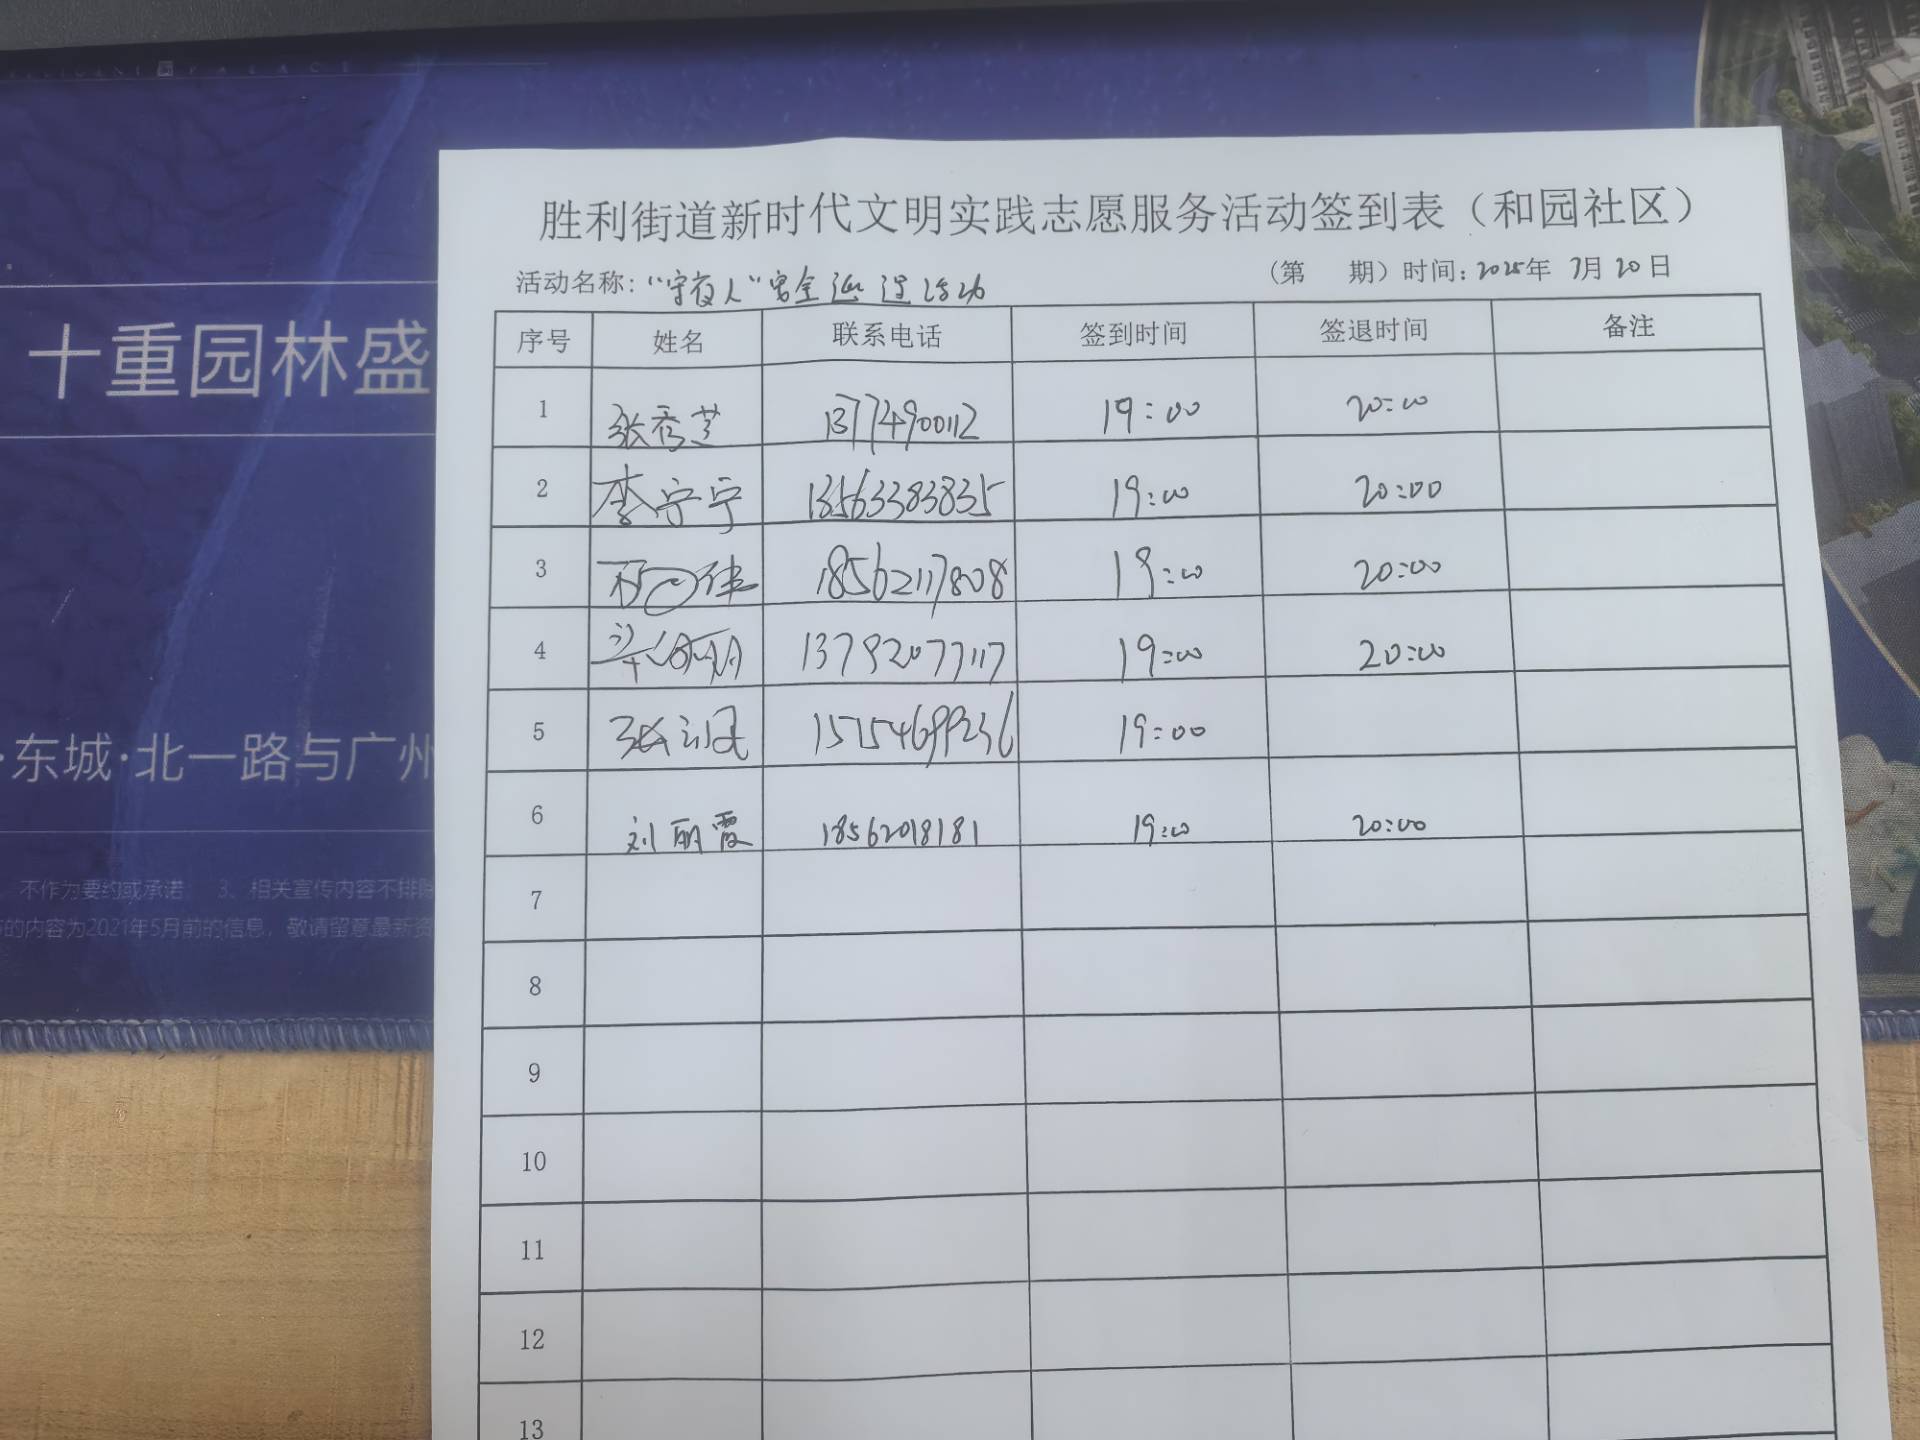 十重园林盛
·东城·北一路与广州
不作为要约或承诺 3、相关宣传内容不排除
的内容为2021年5月前的信息，敬请留意最新资
胜利街道新时代文明实践志愿服务活动签到表（和园社区）
活动名称：“守夜人”安全巡逻活动 （第 期）时间：2025年 7月 20日
序号 姓名 联系电话 签到时间 签退时间 备注
1 张秀芝 13774900112 19:00 20:00
2 李宁宁 13563383835 19:00 20:00
3 18562117808 19:00 20:00
4 13792077117 19:00 20:00
5 张 19:00
6 刘丽霞 18562018181 19:00 20:00
7
8
9
10
11
12
13